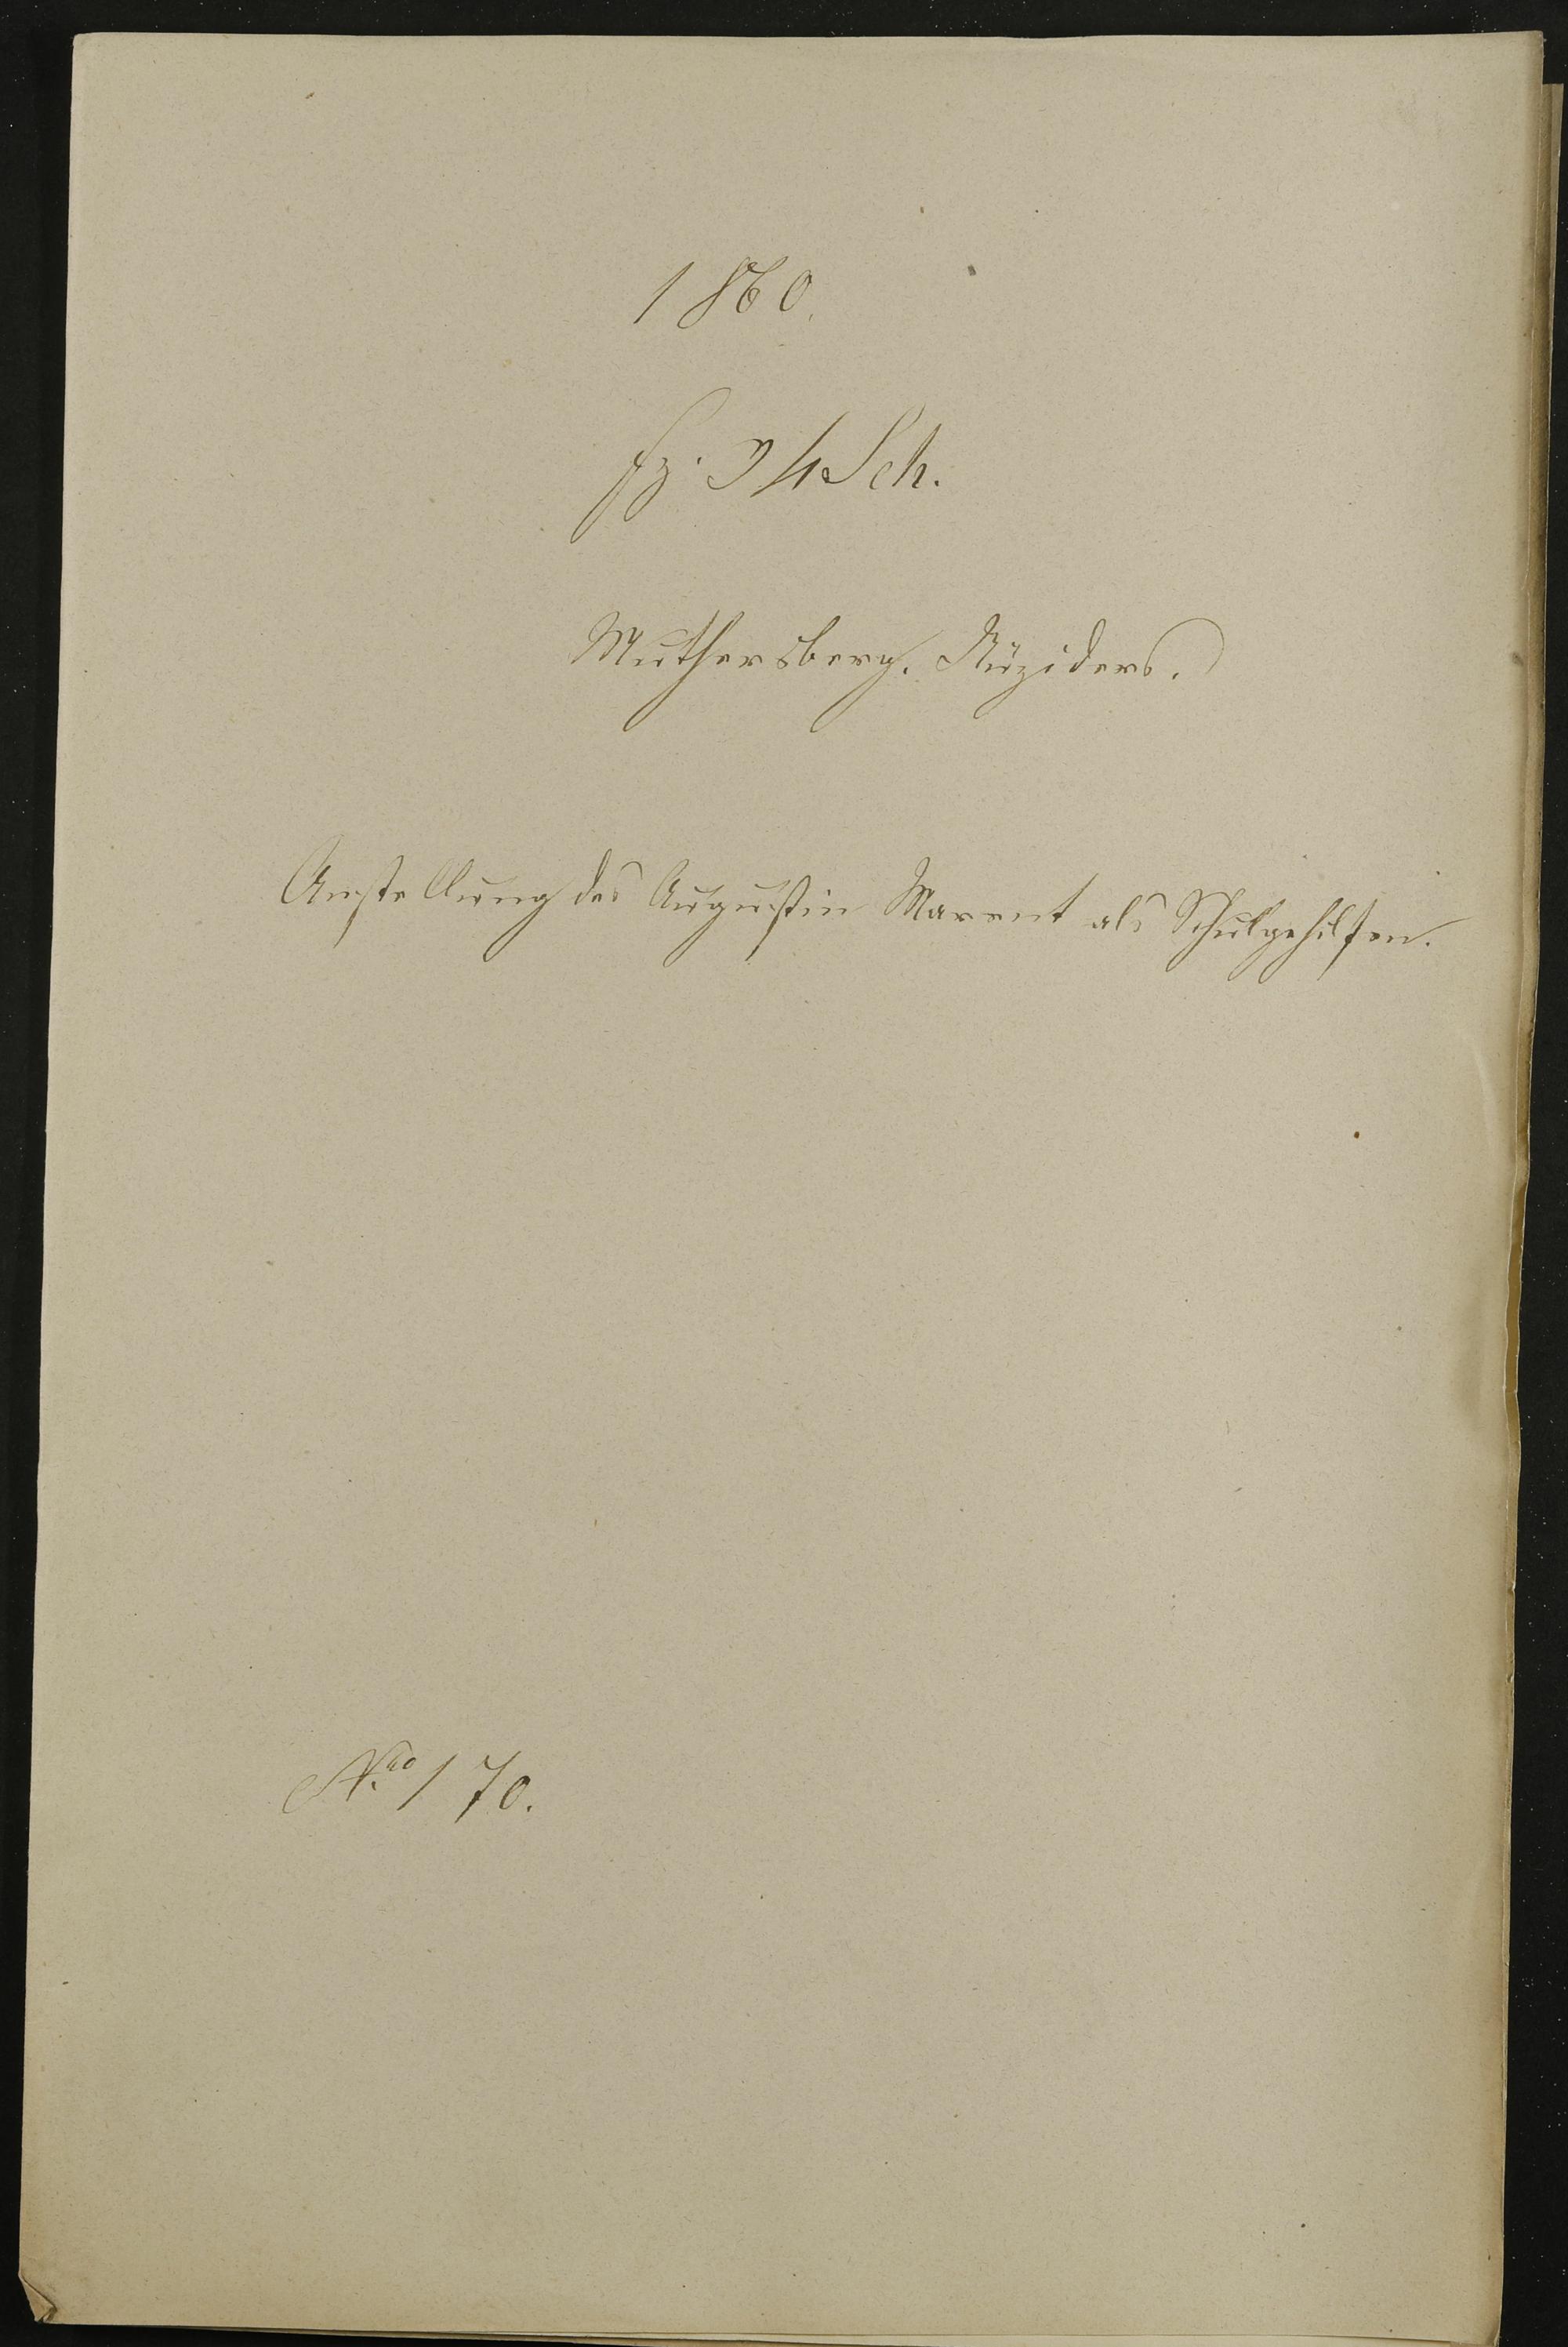 1860.
fz. 24 Sch.
Muthersberg. Nüziders.
Anstellung des Augustin Marent als Schulgehilfen.
No 170.